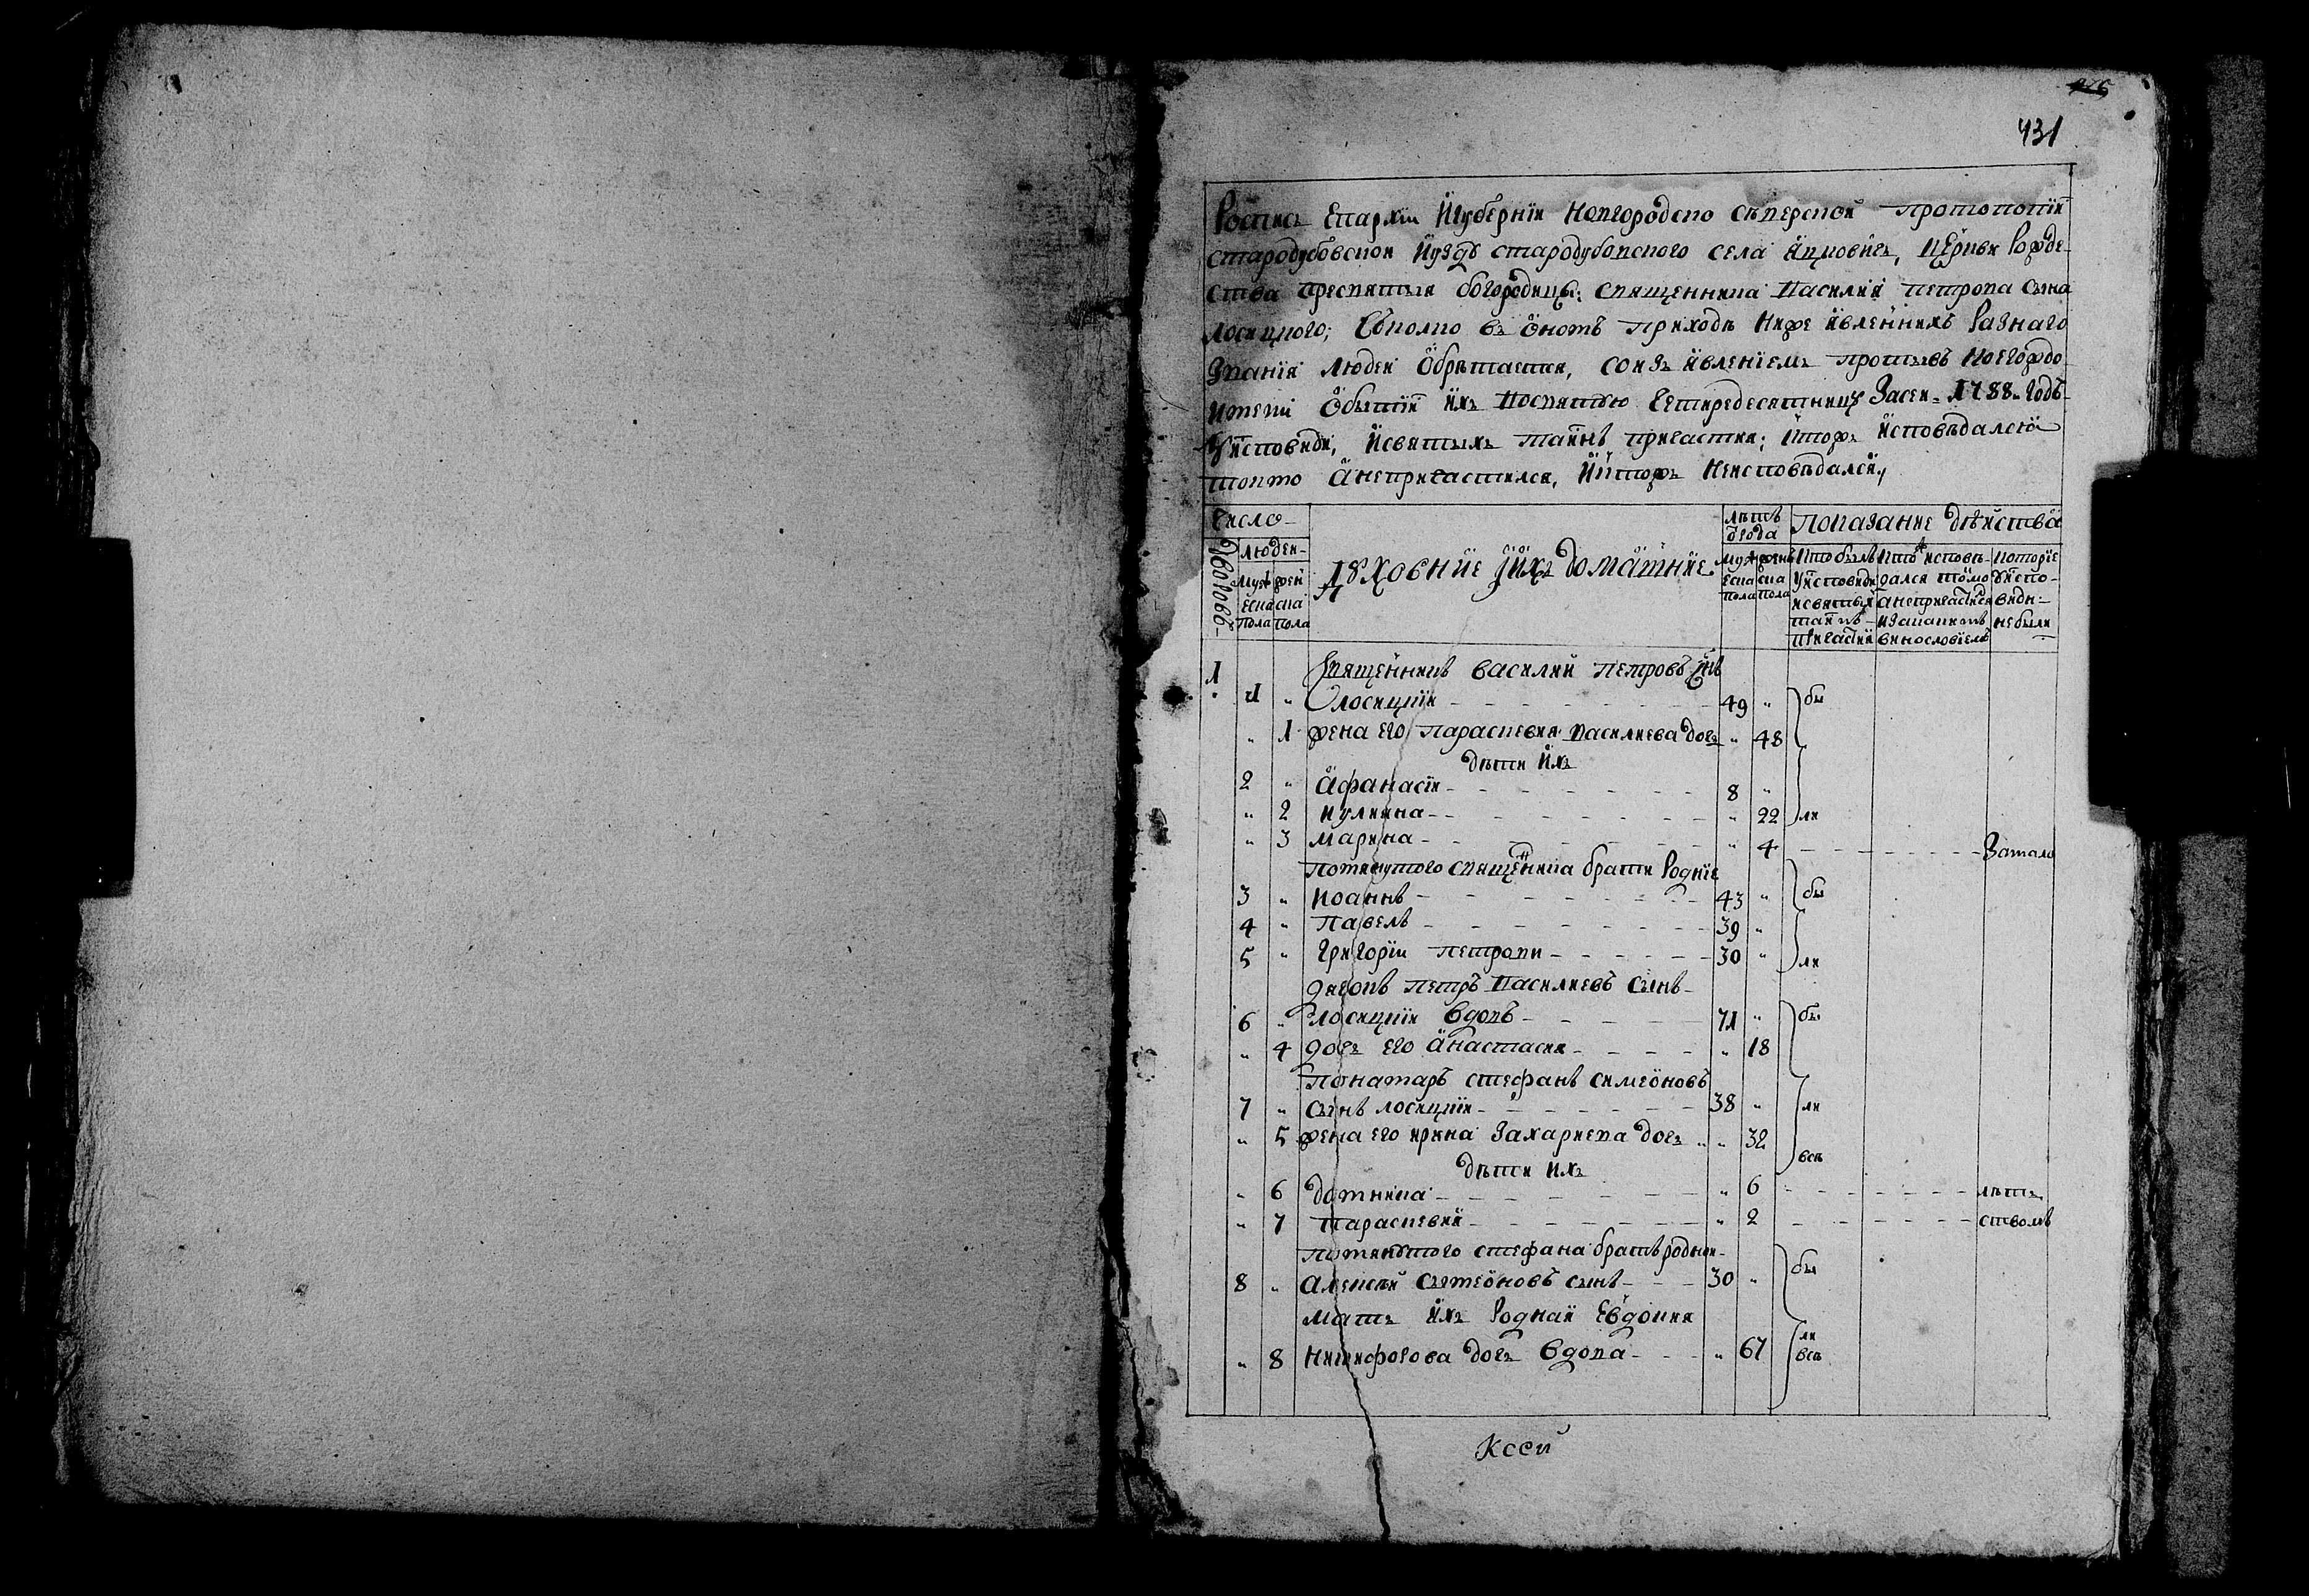 431
Роспись Епархіи Игуберніи Новгородско сѣверской протопопіи
стародубовской Иуездѣ стародубовского села Яцковичь, церкви Рожде-
ства пресвятыя богородицы: священника Василия петрова сына
лосицкого; Сколко въ ономъ приходѣ ниже явленнихъ Разнаго
Званія людей обрѣтается, сонзъ явленіемъ противъ Коегождо
имени Обытіи ихъ Восвятую Четиредесятницу Засей 1788 годъ
Уисповеди, Исвятыхъ таинъ причастия; Иктожъ исповѣдался
токмо Анепричастился, Иктожъ Неисповѣдался,
Число
людей
дворовъ
мужеска пола
женска пола
Духовние Иихъ домашние
лѣтъ отрода
мужеска пола
женска пола
показание дѣйства
Кто былъ Уисповеди Исвятыхъ таинъ причастия
кто исповѣдался токмо анепричастился Изакакимъ винословіемъ
которіе Уисповѣди небыли
1 Священникъ василий петровъ сынъ
1 " лосицкій 49 " бы
" 1 жена его параскевия василиева дочь " 48
дѣти ихъ
2 " Афанасій 8 "
" 2 иулияна " 22 ли
" 3 марина " 4 Замало
помянутого священника брати Родніе
3 " иоаннъ 43 " бы
4 " павелъ 39 "
5 " григорій петрови 30 " ли
дячокъ петръ василиевъ сынъ
6 " лосицкій вдовъ 71 " бы
" 4 дочь его Анастасия " 18
понамарь стефанъ симеоновъ
7 " сынъ лосицкій 38 " ли
" 5 жена его ирина Захариева дочь " 32 всѣ
дѣти ихъ
" 6 домникиа " 6 лѣт
" 7 параскевия " 2 ством
помянутого стефана братъ родной
8 " Алексѣй сѵмеоновъ сынъ 30 " бы
мать ихъ Родная Евдокия
" 8 Никифорова дочь вдова " 67 ли всѣ
Ксей